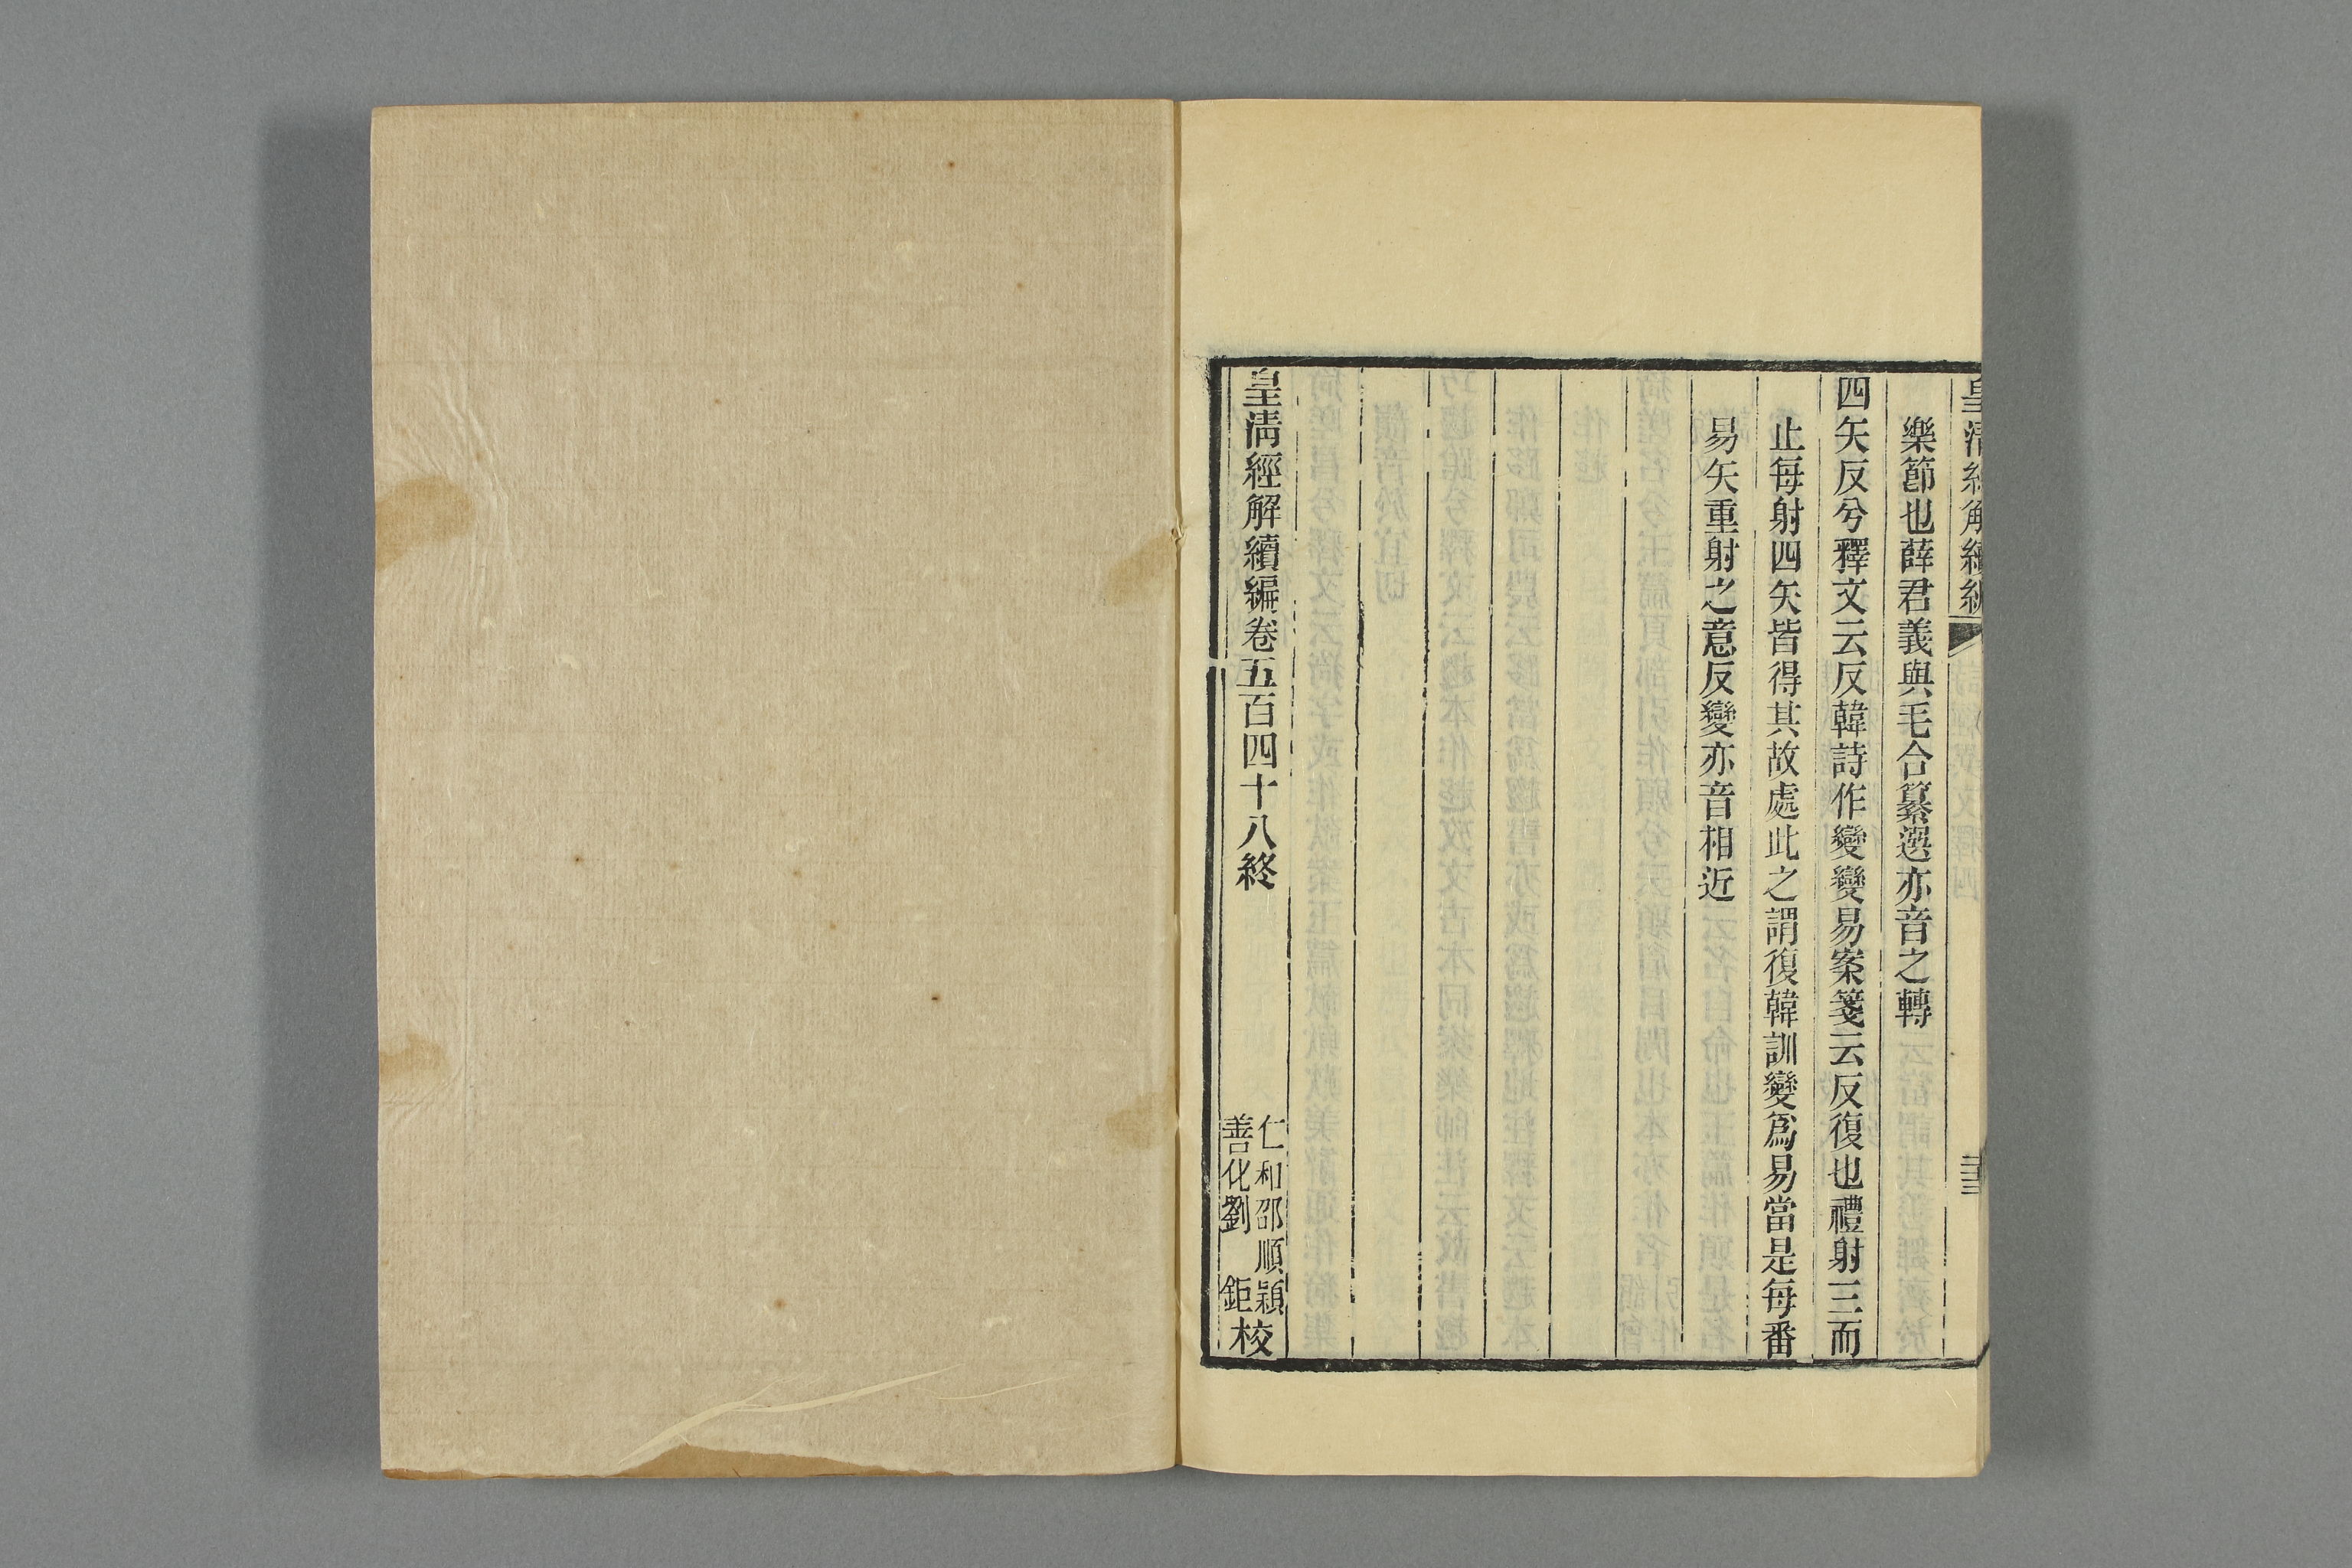 皇清經解續編
樂節也薛君義與毛合纂選亦音之轉
四矢反兮釋文云反韓詩作變變易案箋云反復也禮射三而
止每射四矢皆得其故處此之謂復韓訓變爲易當是每番
易矢重射之意反變亦音相近
皇清經解續編卷五百四十八終
仁和邵順潁
善化劉 鉅
校